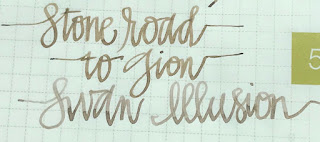 Stone road
to Zion
Swan Illusion
5